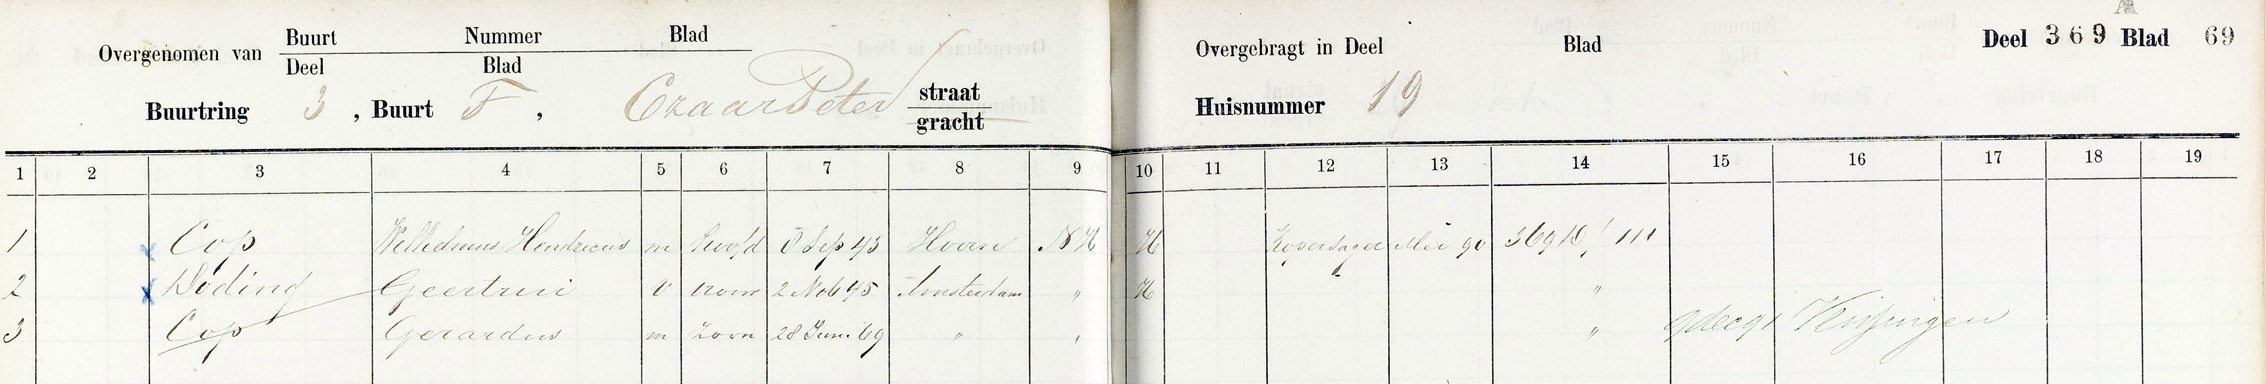 Overgenomen van Buurt Nummer Blad Overgebragt in Deel Blad Deel 369 A Blad 69
Deel Blad
Buurtring 3, Buurt F, Czaar Peter straat Huisnummer 19
gracht
1 2 3 4 5 6 7 8 9 10 11 12 13 14 15 16 17 18 19
1 Cop Wilhelmus Hendricus m hoofd 8 Sep 43 Hoorn NH H Mei 90 369 111
2 Geertrui v vrouw 2 Nob 45 Amsterdam " H "
3 Cop Gerardus m zoon 28 Juni 69 " " " 9 dec 91